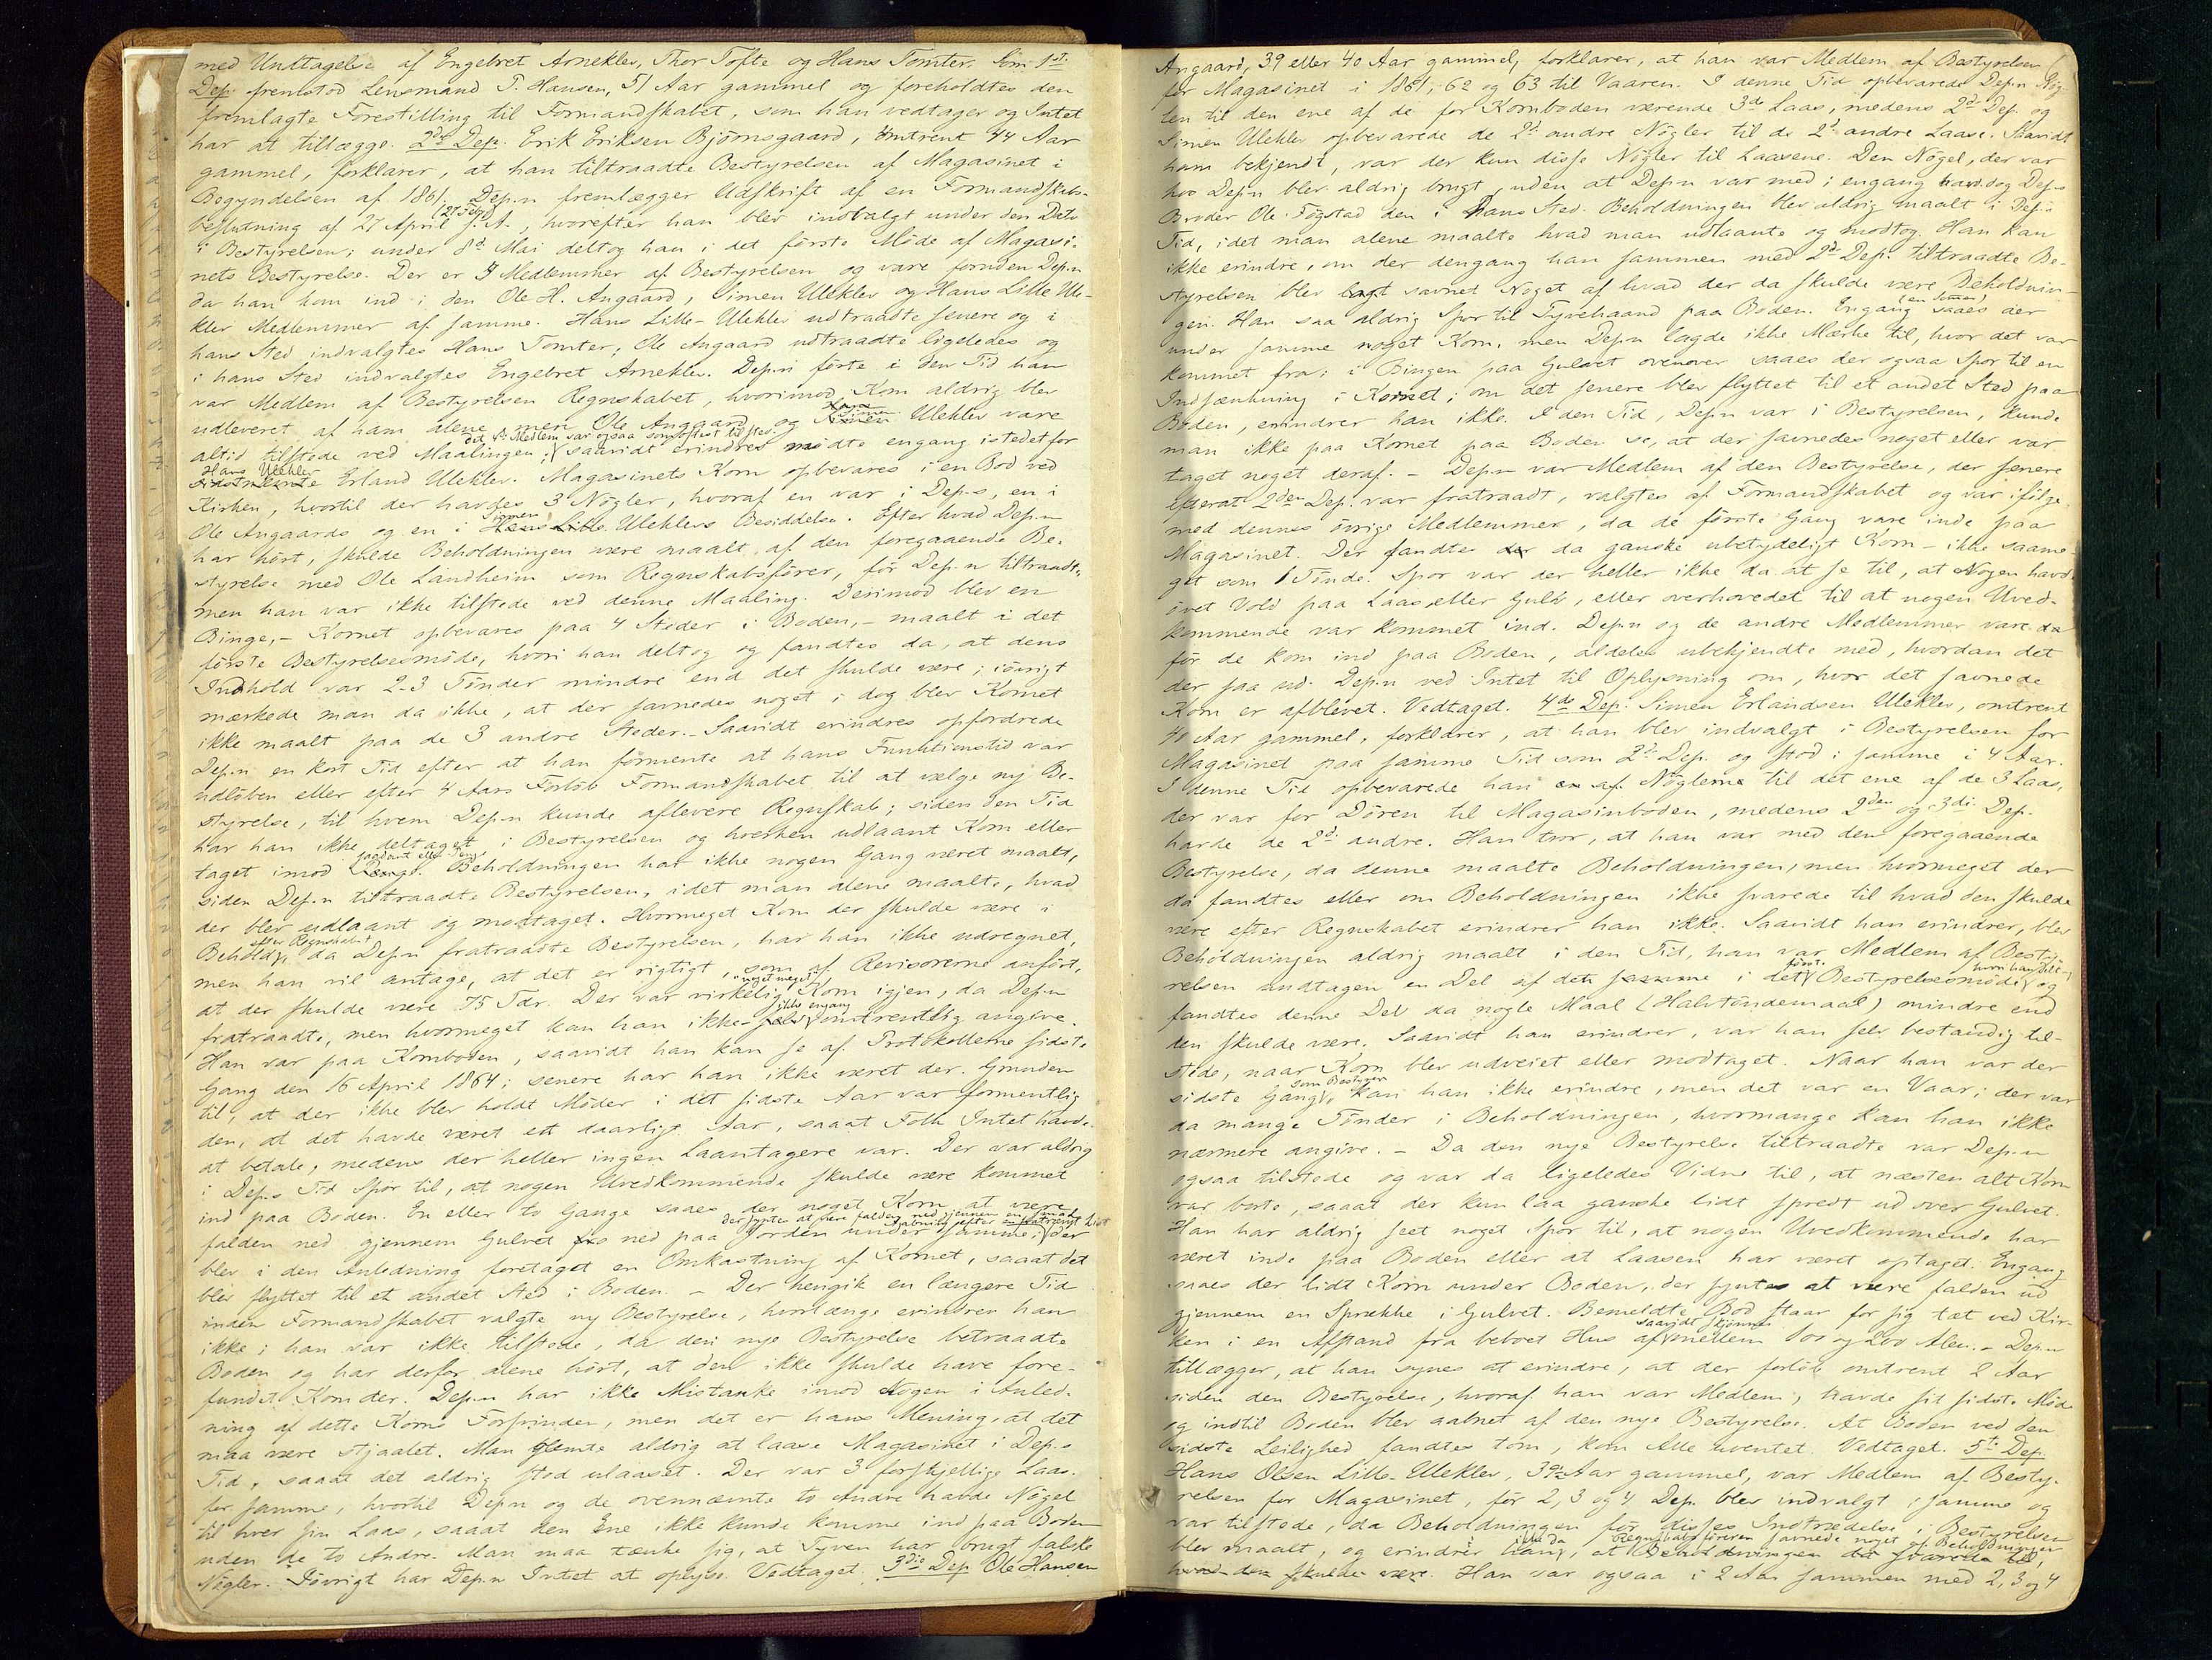 med Undtagelse af Engebret Arneklev, Thor Tofte og Hans Tomter. Som 1ste
Dep. fremstod Lensmand T. Hansen, 51 Aar gammel og foreholdtes den
fremlagte Forestilling til Formandskabet, som han vedtager og Intet
har at tillægge. 2den Dep. Erik Eriksen Bjørnsgaard, omtrent 44 Aar
gammel, forklarer, at han tiltraadte Bestyrelsen af Magasinet i
Begyndelsen af 1861. Dep.n fremlægger Udskrift af en Formandskabs-
beslutning af 27 April s. A., hvorefter han blev indvalgt under den Dato
i Bestyrelsen; under 8de Mai deltog han i det første Møde af Magasi-
nets Bestyrelse. Der er 4 Medlemmer af Bestyrelsen og vare foruden Dep.n
da han kom ind i den Ole H. Angaard, Simen Uleklev og Hans Lille Ule-
klev Medlemmer af samme. Hans Lille-Uleklev udtraadte senere og i
hans Sted indvalgtes Hans Tomter; Ole Angaard udtraadte ligeledes og
i hans Sted indvalgtes Engebret Arneklev. Dep.n førte i den Tid han
var Medlem af Bestyrelsen Regnskabet, hvorimod Korn aldrig blev
udleveret af ham alene, men Ole Angaard og Simen Uleklev vare
det 4de Medlem var ogsaa som oftest tilstede
altid tilstede ved Maalingen; saavidt erindres mødte engang istedetfor
Hans Uleklev
sidstnævnte Erland Uleklev. Magasinets Korn opbevares i en Bod ved
Kirken, hvortil der havdes 3 Nøgler, hvoraf en var i Dep.s, en i
Simen
Ole Angaards og en i Hans Lille Uleklevs Besiddelse. Efter hvad Dep.n
har hørt, skulde Beholdningen være maalt af den foregaaende Be-
styrelse med Ole Landheim som Regnskabsfører, før Dep.n tiltraadte,
men han var ikke tilstede ved denne Maaling. Derimod blev en
Binge, - Kornet opbevares paa 4 Steder i Boden, - maalt i det
første Bestyrelsesmøde, hvori han deltog og fandtes da, at dens
Indhold var 2-3 Tønder mindre end det skulde være; iøvrigt
mærkede man da ikke, at der savnedes noget; dog blev Kornet
ikke maalt paa de 3 andre Steder. - Saavidt erindres opfordrede
Dep.n en kort Tid efter at han formente at hans Funktionstid var
udløben eller efter 4 Aars Forløb Formandskabet til at vælge ny Be-
styrelse, til hvem Dep.n kunde aflevere Regnskab; siden den Tid
har han ikke deltaget i Bestyrelsen og hverken udlaant Korn eller
taget imod saadant eller Penge. Beholdningen har ikke nogen Gang været maalt,
siden Dep.n tiltraadte Bestyrelsen, idet man alene maalte, hvad
der blev udlaant og modtaget. Hvormeget Korn der skulde være i
efter Regnskabet
Behold, da Dep.n fratraadte Bestyrelsen, har han ikke udregnet,
men han vil antage, at det er rigtigt, som af Revisorerne anført,
noget meget
at der skulde være 75 Tdr. Der var virkelig Korn igjen, da Dep.n
ikke engang
fratraadte, men hvormeget kan han ikke omtrentlig angive.
Han var paa Kornboden, saavidt han kan se af Protokollerne sidste
Gang den 16 April 1864; senere har han ikke været der. Grunden
til, at der ikke blev holdt Møder i det sidste Aar var formentlig
den, at det havde været ett daarligt Aar, saaat Folk Intet havde
at betale, medens der heller ingen Laantagere var. Der var aldrig
i Dep.s Tid Spor til, at nogen Uvedkommende skulde være kommet
ind paa Boden. En eller to Gange saaes der noget Korn at være
der syntes at være falden ned gjennem en smal
Aabning efter
falden ned gjennem Gulvet ned paa Jorden under samme; der
blev i den Anledning foretaget en Omkastning af Kornet, saaat det
blev flyttet til et andet Sted i Boden. - Der hengik en længere Tid
inden Formandskabet valgte ny Bestyrelse, hvorlænge erindrer han
ikke; han var ikke tilstede, da den nye Bestyrelse betraadte
Boden og har derfor alene hørt, at den ikke skulde have fore-
fundet Korn der. Dep.n har ikke Mistanke imod Nogen i Anled-
ning af dette Korns Forsvinden, men det er hans Mening, at det
maa være stjaalet. Man glemte aldrig at laase Magasinet i Dep.s
Tid, saaat det aldrig stod ulaaset. Der var 3 forskjellige Laase
for samme, hvortil Dep.n og de ovennævnte to Andre havde Nøgel
til hver sin Laas, saaat den Ene ikke kunde komme ind paa Boden
uden de to Andre. Man maa tænke sig, at Tyven har brugt falske
Nøgler. Iøvrigt har Dep.n Intet at oplyse. Vedtaget. 3die Dep Ole Hansen
Angaard, 39 eller 40 Aar gammel, forklarer, at han var Medlem af Bestyrelsen
for Magasinet i 1861, 62 og 63 til Vaaren. I denne Tid opbevarede Dep.n Nøg-
len til den ene af de for Kornboden værende 3de Laas, medens 2den Dep. og
Simen Uleklev opbevarede de 2de andre Nøgler til de 2de andre Laase. Saavidt
ham bekjendt, var der kun disse Nøgler til Laasene. Den Nøgel, der var
hos Dep.n blev aldrig brugt, uden at Dep.n var med; engang var dog Dep.s
Broder Ole Fogstad den i hans Sted. Beholdningen blev aldrig maalt i Dep.s
Tid, idet man alene maalte hvad man udlaante og modtog. Han kan
ikke erindre, om der dengang han sammen med 2den Dep. tiltraadte Be-
styrelsen blev sagt savnet Noget af hvad der da skulde være Beholdnin-
(en Sommer)
gen. Han saa aldrig Spor til Tyvehaand paa Boden. Engang saaes der
under samme noget Korn, men Dep.n lagde ikke Mærke til, hvor det var
kommet fra; i Bingen paa Gulvet ovenover saaes der ogsaa Spor til en
Indsænkning i Kornet; om det senere blev flyttet til et andet Sted paa
Boden, erindrer han ikke. I den Tid, Dep.n var i Bestyrelsen, kunde
man ikke paa Kornet paa Boden se, at der savnedes noget eller var
taget noget deraf. - Dep.n var Medlem af den Bestyrelse, der senere
efterat 2den Dep. var fratraadt, valgtes af Formandskabet og var ifølge
med dennes øvrige Medlemmer, da de første Gang vare inde paa
Magasinet. Der fandtes da ganske ubetydeligt Korn - ikke saame-
get som 1 Tønde. Spor var der heller ikke da at se til, at Nogen havde
øvet Vold paa Laas eller Gulv, eller overhovedet til at nogen Uved-
kommende var kommet ind. Dep.n og de andre Medlemmer vare
før de kom ind paa Boden, aldeles ubekjendte med, hvordan det
der saa ud. Dep.n ved Intet til Oplysning om, hvor det savnede
Korn er afblevet. Vedtaget. 4de Dep: Simen Erlandsen Uleklev, omtrent
40 Aar gammel, forklarer, at han blev indvalgt i Bestyrelsen for
Magasinet paa samme Tid som 2den Dep. og stod i samme i 4 Aar.
I denne Tid opbevarede han en af Nøglerne til det ene af de 3 Laas,
der var for Døren til Magasinboden, medens 2den og 3die Dep.
havde de 2de andre. Han tror, at han var med den foregaaende
Bestyrelse, da denne maalte Beholdningen, men hvormeget der
da fandtes eller om Beholdningen ikke svarede til hvad den skulde
være efter Regnskabet erindrer han ikke. Saavidt han erindrer, blev
Beholdningen aldrig maalt i den Tid, han var Medlem af Besty-
først. hvori han deltog
relsen undtagen en Del af den i det Bestyrelsesmøde og
fandtes denne Del da nogle Maal (Halvtøndemaal) mindre end
den skulde være. Saavidt han erindrer, var han selv bestandig til-
stede, naar Korn blev udveiet eller modtaget. Naar han var der
som Bestyrer
sidste Gang, kan han ikke erindre, men det var en Vaar; der var
da mange Tønder i Beholdningen, hvormange kan han ikke
nærmere angive. - Da den nye Bestyrelse tiltraadte var Dep.n
ogsaa tilstede og var da ligeledes Vidne til, at næsten alt Korn
var borte, saaat der kun laa ganske lidt spredt ud over Gulvet.
Han har aldrig seet noget Spor til, at nogen Uvedkommende har
været inde paa Boden eller at Laasen har været optaget. Engang
saaes der lidt Korn under Boden, der syntes at være falden ud
gjennem en Sprække i Gulvet. Bemeldte Bod staar for sig tæt ved Kir-
saavidt skjønnes
ken i en Afstand fra beboet Hus af mellem 100 og 200 Alen. - Dep.n
tillægger, at han synes at erindre, at der forløb omtrent 2 Aar
siden den Bestyrelse, hvoraf han var Medlem, havde sit sidste Møde
og indtil Boden blev aabnet af den nye Bestyrelse. At Boden ved den
sidste Leilighed fandtes tom, kom Alle uventet. Vedtaget. 5te Dep.
Hans Olsen Lille-Uleklev, 39 Aar gammel, var Medlem af Besty-
relsen for Magasinet, før 2, 3 og 4 Dep. blev indvalgt i samme og
var tilstede, da Beholdningen før disses Indtrædelse i Bestyrelsen
ikke da Regnskabsføreren savnede noget af Beholdningen
blev maalt, og erindrer han, at Beholdningen svarede til,
hvad den skulde være. Han var ogsaa i 2 Aar sammen med 2, 3 og 4